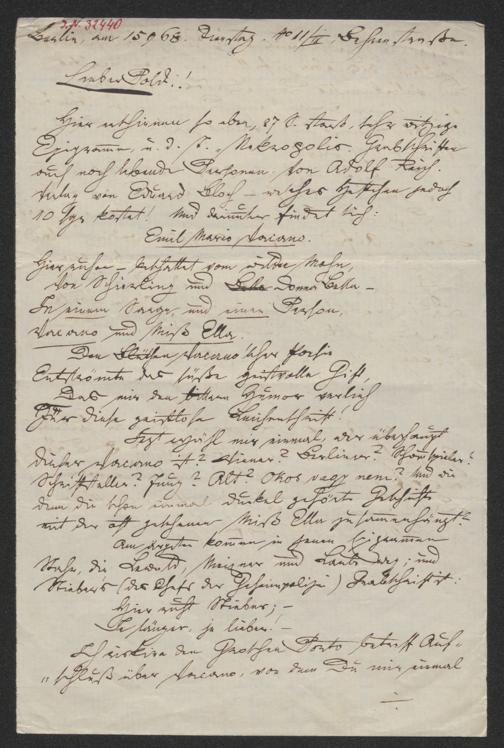 J.N. 32440
Berlin, am 15/9 68. Dienstag. No 11/II, Behrenstraße.
Lieber Poldi!
Hier erschienen so eben, 27 S. stark, sehr witzige
Epigramme, u. d. T. „Nekropolis. Grabschriften
auch noch lebender Personen. Von Adolf Reich.
Verlag von Eduard Bloch – welches Heftchen jedoch
10 Sgr. kostet! Und darunter findet sich:
Emil Mario Vacano.
Hier ruhen – bestattet vom Mohn,
Von Schierling und Donna Bella –
In einem Sarge, und einer Person,
Vacano und Miß Ella.
Den Vacano's
Entströmte das süße Gift,
Das mir den bittern Humor verlieh
Für diese geistlose Leichenschrift!
Jetzt erzähl mir einmal, wer überhaupt
dieser Vacano ist? Wiener? Berliner? Schauspieler?
Schriftsteller? Jung? Alt? Okos vagy nem? Und wie
denn die schon einmal dunkel gehörte Geschichte
mit der oft gesehenen Miß Ella zusammenhängt?
Am ärgsten kommen in jenen Epigrammen
Wehl, die Meixner und Laube weg; und
Stieber's (des Chefs der Geheimpolizei) Grabschrift ist:
Hier ruht Stieber; –
Je länger, je lieber! –
Ich riskire den Groschen Porto betreff Auf-
schluß über Vacano, von dem Du mir einmal